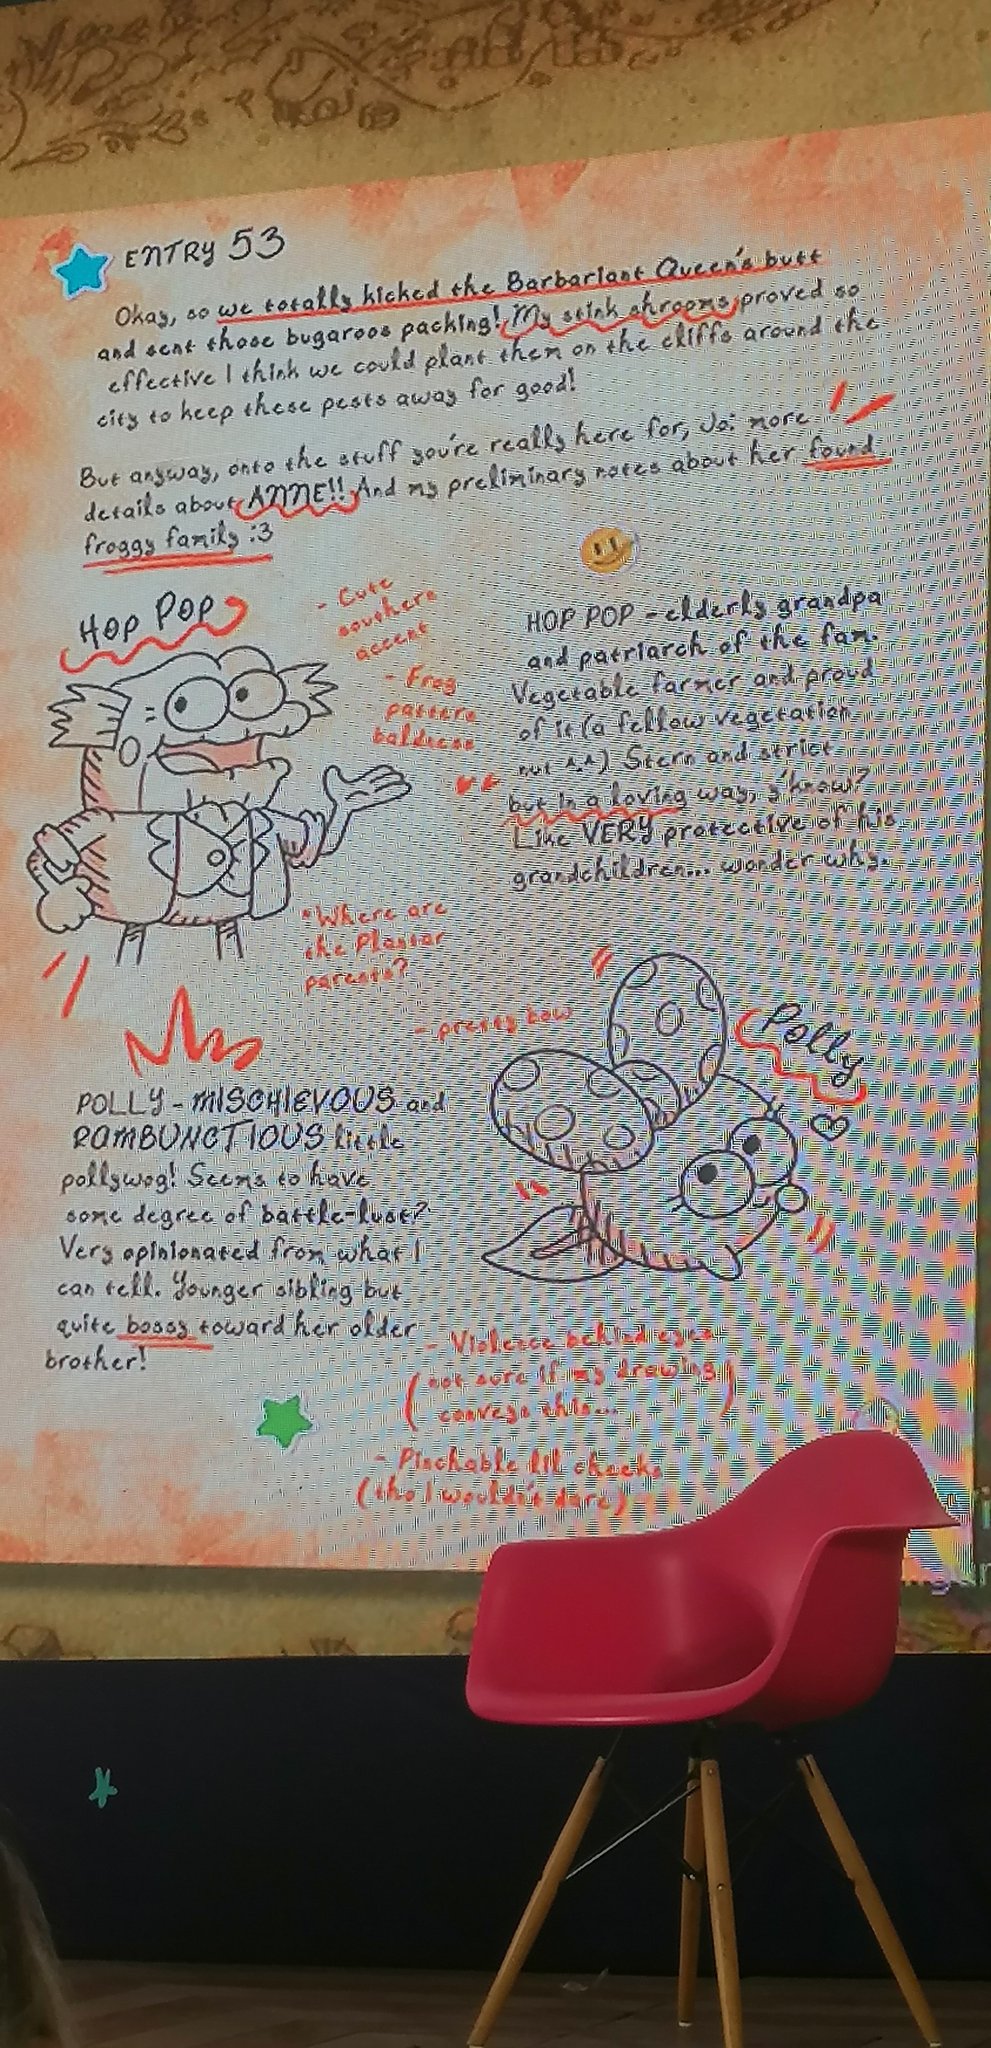 ENTRY 53
Okay, so we totally kicked the Barbariant Queen's butt
and sent those bugaroos packing! My stink shrooms proved so
effective I think we could plant them on the cliffs around the
city to keep these pests away for good!
But anyway, onto the stuff you're really here for, Jo: more
details about ANNE!! And my preliminary notes about her found
froggy family :3
HOP POP
- Cute
southern
accent
- Frog
pattern
baldness
HOP POP - elderly grandpa
and patriarch of the fam.
Vegetable farmer and proud
of it (a fellow vegetation
nut ^.^) Stern and strict
but in a loving way, y'know?
Like VERY protective of his
grandchildren... wonder why.
*Where are
the Plantar
parents?
- pretty bow
Polly
POLLY - MISCHIEVOUS and
RAMBUNCTIOUS little
pollywog! Seems to have
some degree of battle-lust?
Very opinionated from what I
can tell. Younger sibling but
quite bossy toward her older
brother!
- Violence behind eyes
(not sure if my drawing
conveys this...)
- Pinchable lil cheeks
(tho I wouldn't dare)